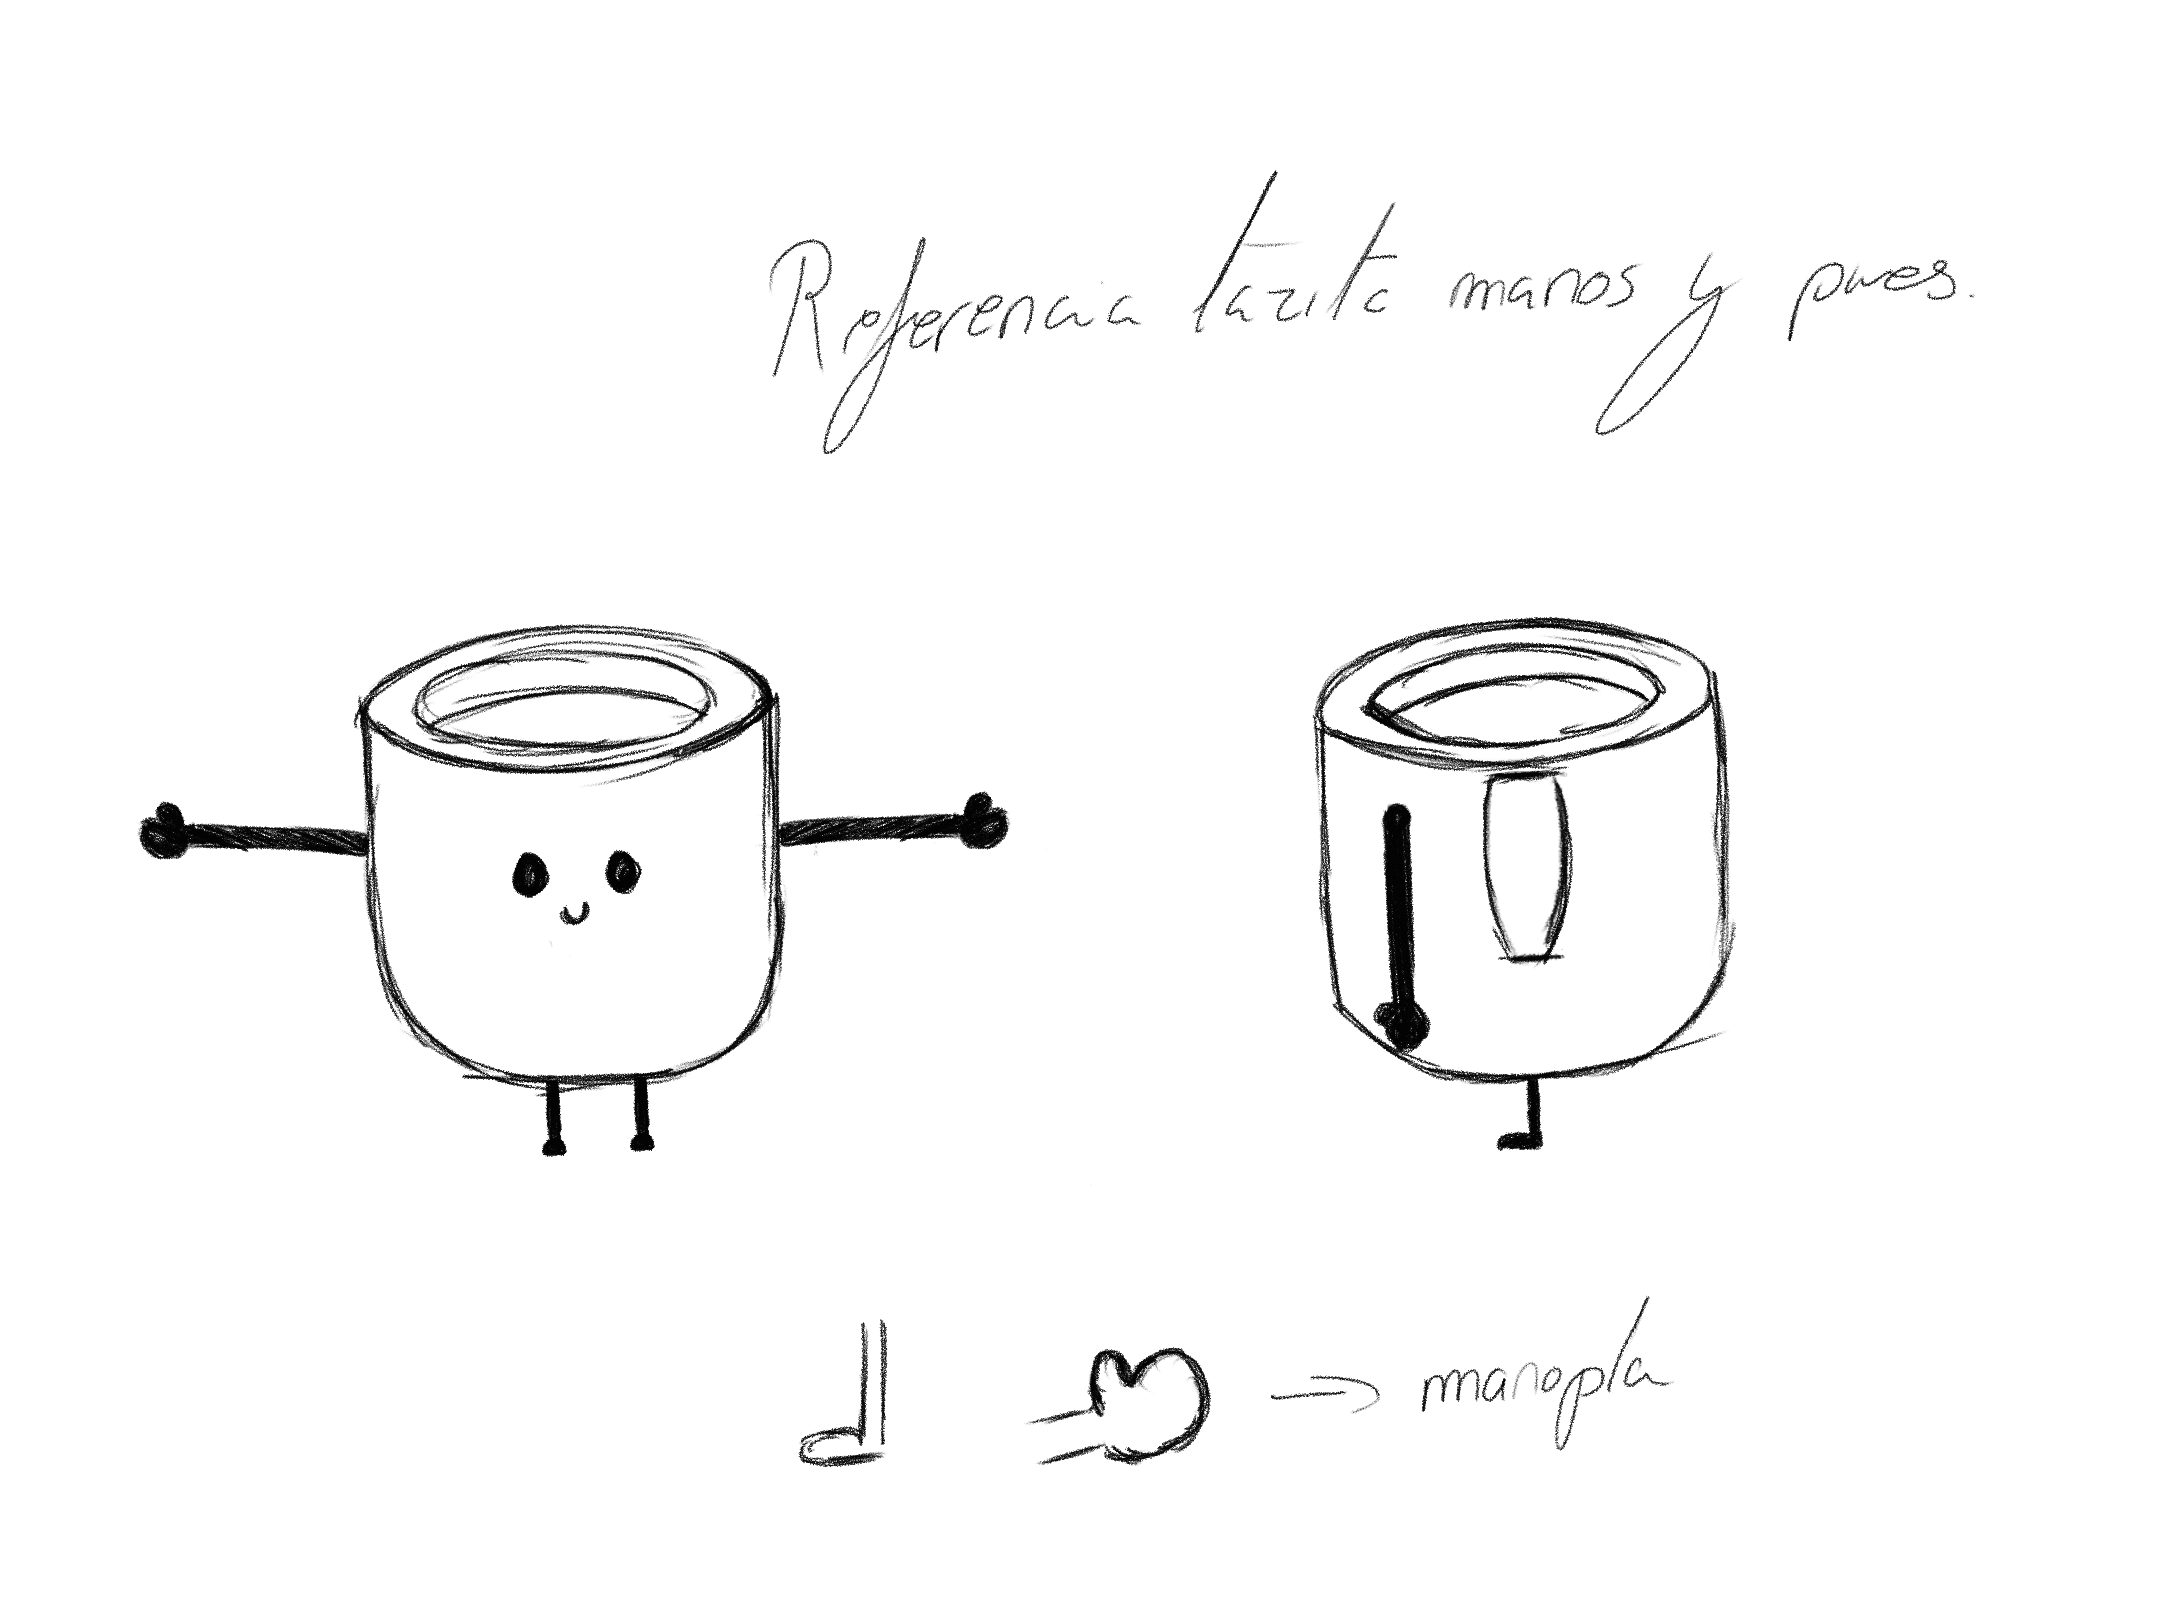 Referencia tazita manos y pies.
manopla